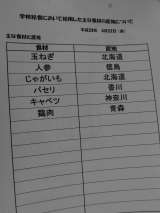 学校給食において使用した主な食材の産地について
平成23年
主な食材と産地
食材 産地
玉ねぎ 北海道
人参 徳島
じゃがいも 北海道
パセリ 香川
キャベツ 神奈川
鶏肉 青森